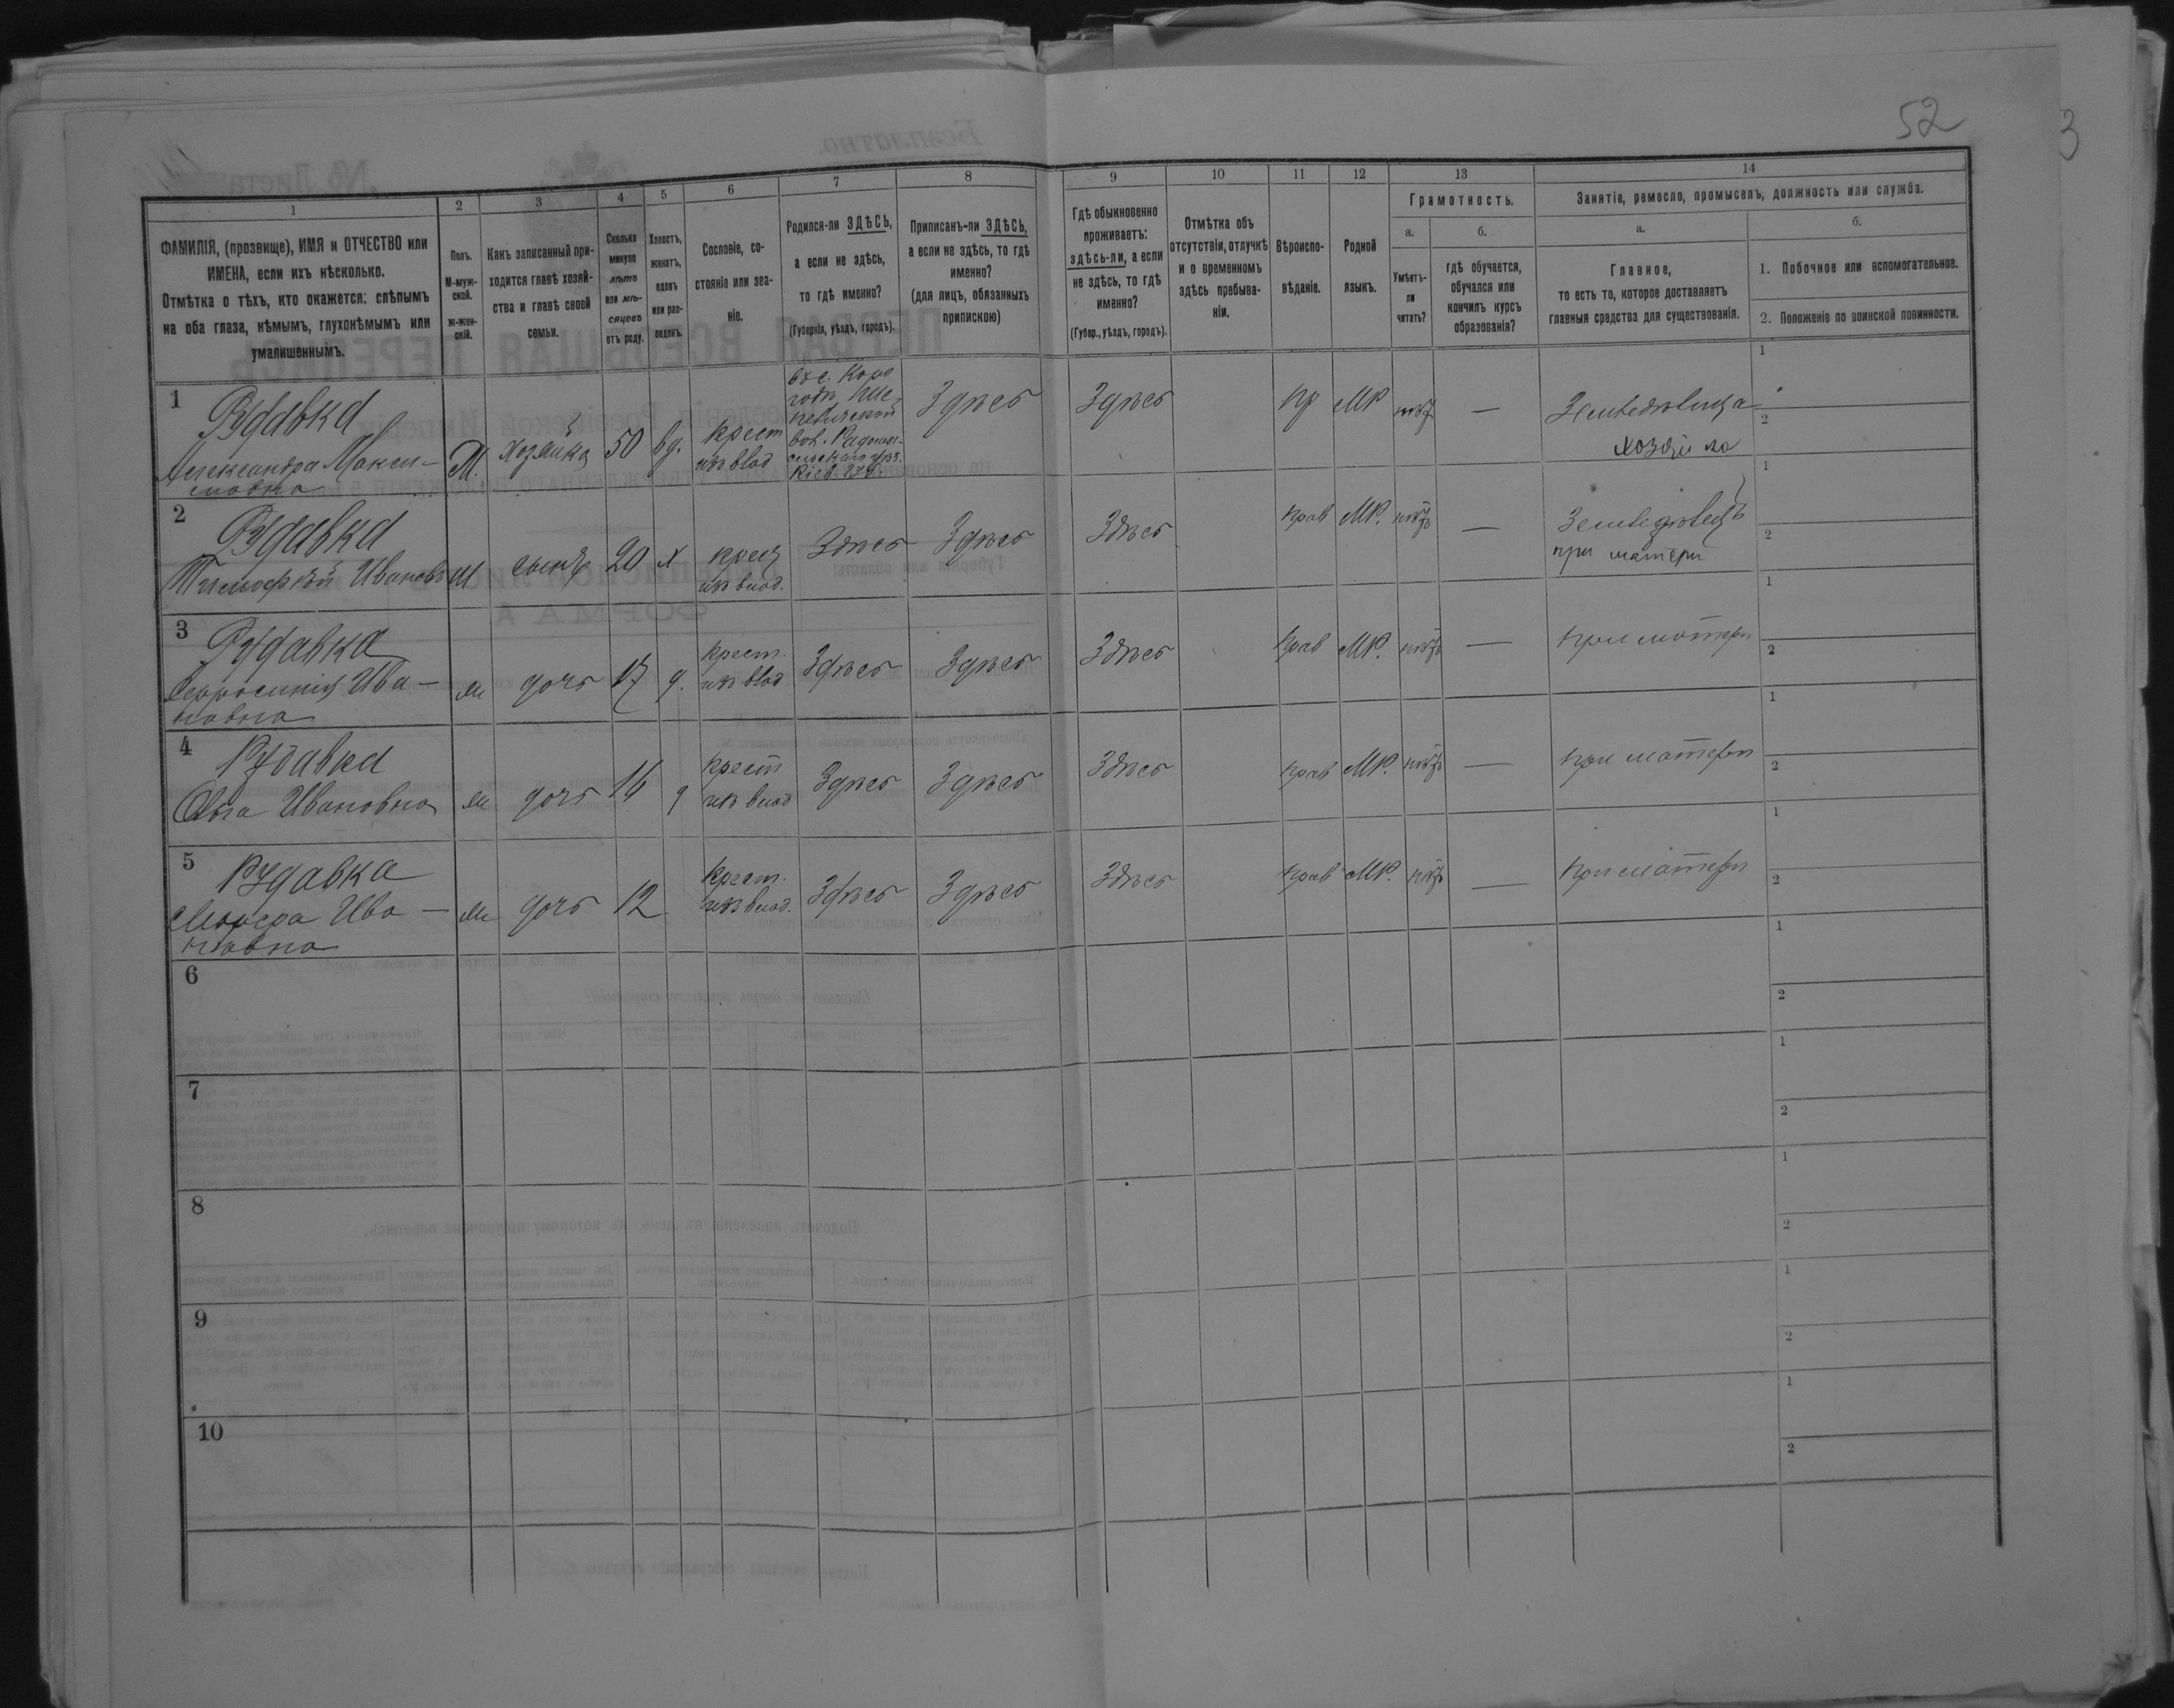 52
3
1
2
3
4
5
6
7
8
9
10
11
12
13
14
ФАМИЛІЯ, (прозвище), ИМЯ и ОТЧЕСТВО или
ИМЕНА, если ихъ нѣсколько.
Отмѣтка о тѣхъ, кто окажется: слѣпымъ
на оба глаза, нѣмымъ, глухонѣмымъ или
умалишеннымъ.
Полъ.
М-муж-
ской.
ж-жен-
скій.
Какъ записанный при-
ходится главѣ хозяй-
ства и главѣ своей
семьи.
Сколько
минуло
лѣтъ
или мѣ-
сяцевъ
отъ роду.
Холостъ,
женатъ,
вдовъ
или раз-
веденъ.
Сословіе, со-
стояніе или зва-
ніе.
Родился-ли ЗДѢСЬ,
а если не здѣсь,
то гдѣ именно?
(Губернія, уѣздъ, городъ).
Приписанъ-ли ЗДѢСЬ,
а если не здѣсь, то гдѣ
именно?
(для лицъ, обязанныхъ
припискою)
Гдѣ обыкновенно
проживаетъ:
здѣсь-ли, а если
не здѣсь, то гдѣ
именно?
(Губер., уѣздъ, городъ).
Отмѣтка объ
отсутствіи, отлучкѣ
и о временномъ
здѣсь пребыва-
ніи.
Вѣроиспо-
вѣданіе.
Родной
языкъ.
Грамотность.
а.
Умѣетъ-
ли
читать?
б.
гдѣ обучается,
обучался или
кончилъ курсъ
образованія?
Занятіе, ремесло, промыселъ, должность или служба.
а.
Главное,
то есть то, которое доставляетъ
главныя средства для существованія.
б.
1. Побочное или вспомогательное.
2. Положеніе по воинской повинности.
1
Рудавка
Александра Макси-
мовна
хозяйка
50
вд.
крест
изъ влад
Здѣсь
Здѣсь
пр
МР
нѣтъ
—
хозяйка
1
2
2
Рудавка
Тимофѣй Ивановъ
м
сынъ
20
х
крест
изъ влад.
Здѣсь
Здѣсь
Здѣсь
прав
МР.
нѣтъ
—
Земледѣлецъ
при матери
1
2
3
Рудавка
Ива-
новна
дочь
17
д.
крест.
изъ влад
Здѣсь
Здѣсь
Здѣсь
прав
МР.
нѣтъ
—
при матери
1
2
4
Рудавка
Ольга Ивановна
дочь
д
крест
изъ влад
Здѣсь
Здѣсь
Здѣсь
прав
МР.
нѣтъ
—
при матери
1
2
5
Рудавка
Ива-
новна
дочь
12
крест.
изъ влад.
Здѣсь
Здѣсь
Здѣсь
прав
МР.
нѣтъ
—
при матери
1
2
6
1
2
7
1
2
8
1
2
9
1
2
10
1
2